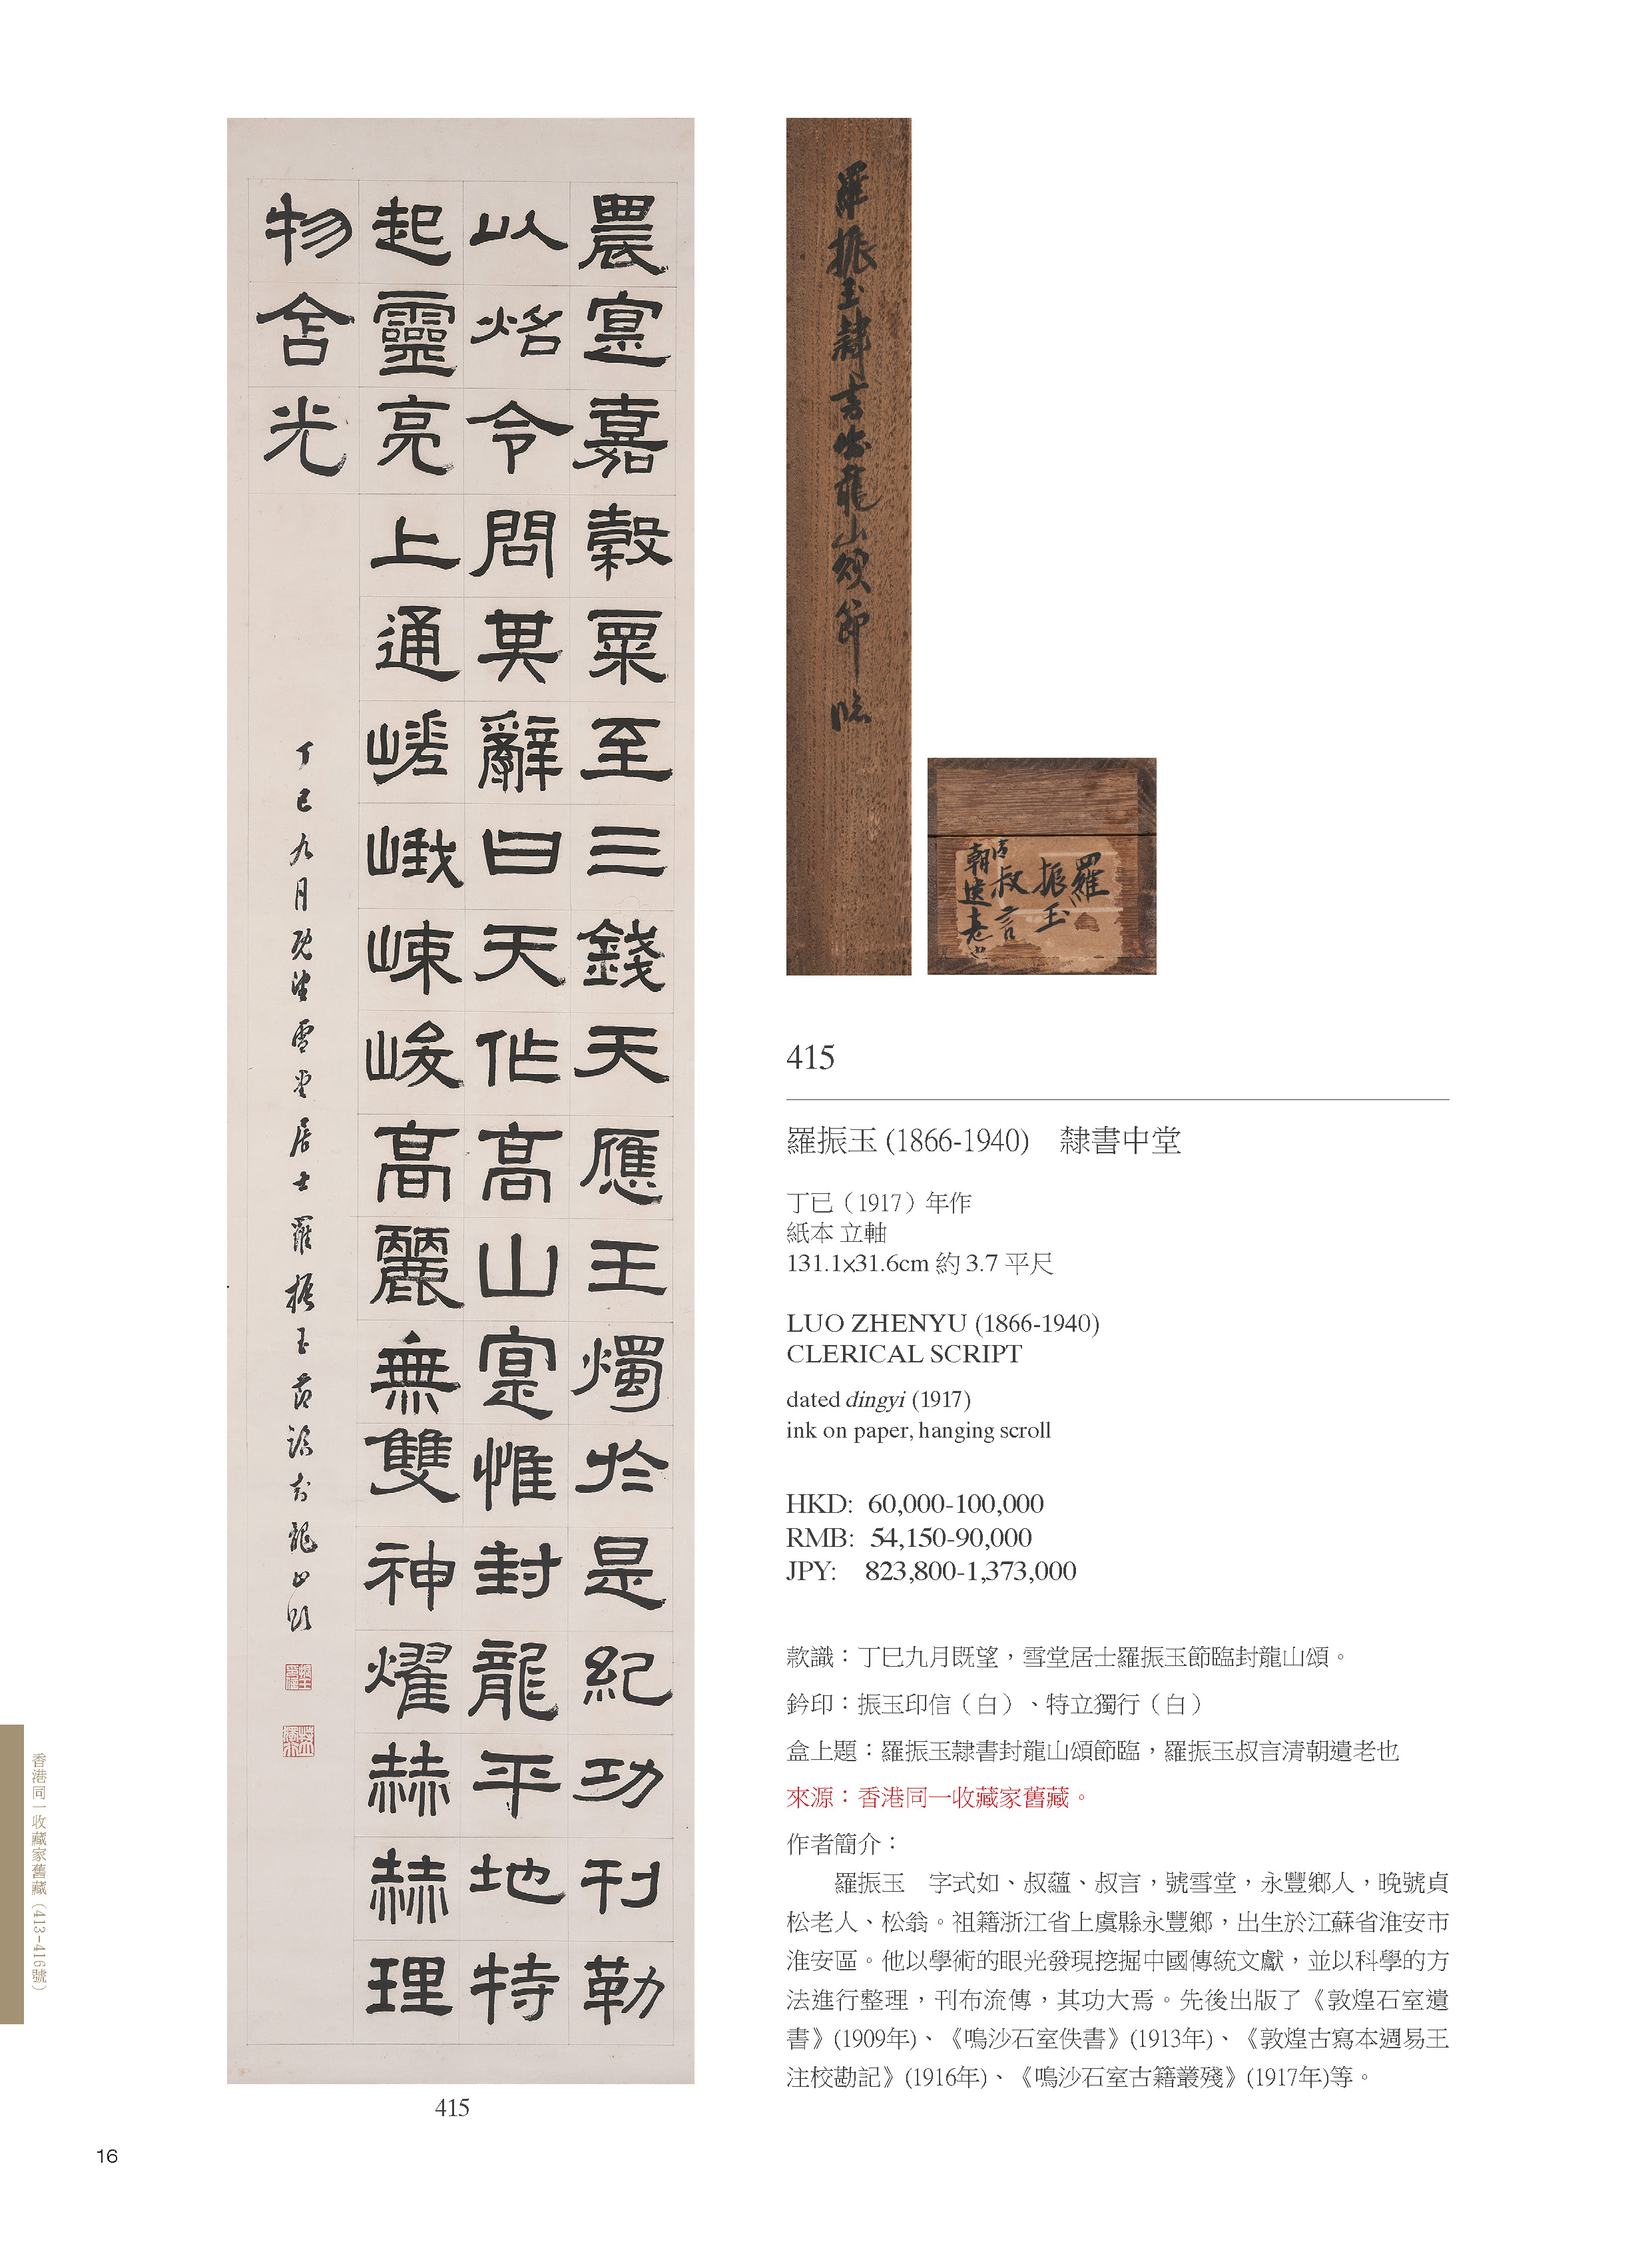 農寔嘉穀粟至三錢天應王燭於是紀功刊勒
以炤令問其辭曰天作高山寔惟封龍平地特
起靈亮上通嵯峨崠峻高麗無雙神燿赫赫理
物含光
丁巳九月既望雪堂居士羅振玉節臨封龍山頌
振玉印信
特立獨行
415
羅振玉隸書封龍山頌節臨
羅振玉
叔言清
朝遺老也
415
羅振玉 (1866-1940) 隸書中堂
丁已（1917）年作
紙本 立軸
131.1x31.6cm 約 3.7 平尺
LUO ZHENYU (1866-1940)
CLERICAL SCRIPT
dated dingyi (1917)
ink on paper, hanging scroll
HKD: 60,000-100,000
RMB: 54,150-90,000
JPY: 823,800-1,373,000
款識：丁巳九月既望，雪堂居士羅振玉節臨封龍山頌。
鈐印：振玉印信（白）、特立獨行（白）
盒上題：羅振玉隸書封龍山頌節臨，羅振玉叔言清朝遺老也
來源：香港同一收藏家舊藏。
作者簡介：
羅振玉 字式如、叔蘊、叔言，號雪堂，永豐鄉人，晚號貞
松老人、松翁。祖籍浙江省上虞縣永豐鄉，出生於江蘇省淮安市
淮安區。他以學術的眼光發現挖掘中國傳統文獻，並以科學的方
法進行整理，刊布流傳，其功大焉。先後出版了《敦煌石室遺
書》(1909年)、《鳴沙石室佚書》(1913年)、《敦煌古寫本週易王
注校勘記》(1916年)、《鳴沙石室古籍叢殘》(1917年)等。
香港同一收藏家舊藏（413-416號）
16